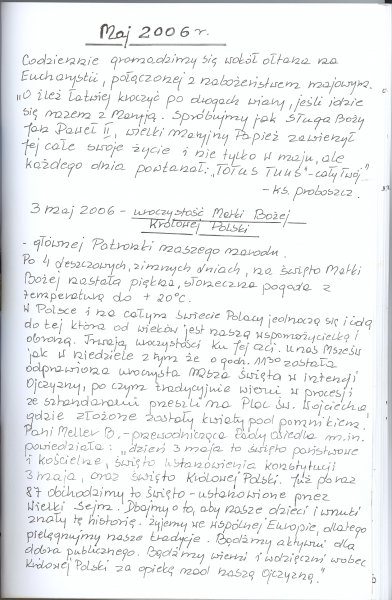 Maj 2006 r.
Codziennie gromadzimy się wokół ołtarza na
Eucharystii, połączonej z nabożeństwem majowym.
"O ileż łatwiej kroczyć po drogach wiary, jeśli idzie
się razem z Maryją. Spróbujmy jak Sługa Boży
Jan Paweł II, wielki Maryjny Papież zawierzył
Jej całe swoje życie i nie tylko w maju, ale
każdego dnia powtarzał: "Totus Tuus" - cały Twój..."
- ks. proboszcz.
3 maj 2006 - uroczystość Matki Bożej
Królowej Polski
- głównej Patronki naszego narodu.
Po 4 deszczowych, zimnych dniach, na święto Matki
Bożej nastała piękna, słoneczna pogoda z
temperaturą do + 20°C.
W Polsce i na całym świecie Polacy jednoczą się i idą
do tej która od wieków jest naszą wspomożycielką i
obroną. Trwają uroczystości ku Jej czci. U nas Msze św.
jak w niedzielę z tym że o godz. 11³⁰ została
odprawiona uroczysta Msza Święta w intencji
Ojczyzny, po czym tradycyjnie wierni w procesji
ze sztandarami przeszli na Plac św. Wojciecha
gdzie złożone zostały kwiaty pod pomnikiem.
Pani Meller B. - przewodnicząca Rady Osiedla m.in.
powiedziała: "dzień 3 maja to święto państwowe
i kościelne, święto ustanowienia konstytucji
3 maja, oraz święto Królowej Polski. Już po raz
87 obchodzimy to święto - ustanowione przez
Wielki Sejm. Dbajmy o to, aby nasze dzieci i wnuki
znały tę historię. Żyjemy we wspólnej Europie, dlatego
pielęgnujmy nasze tradycje. Bądźmy aktywni dla
dobra publicznego. Bądźmy wierni i wdzięczni wobec
Królowej Polski za opiekę nad naszą Ojczyzną."